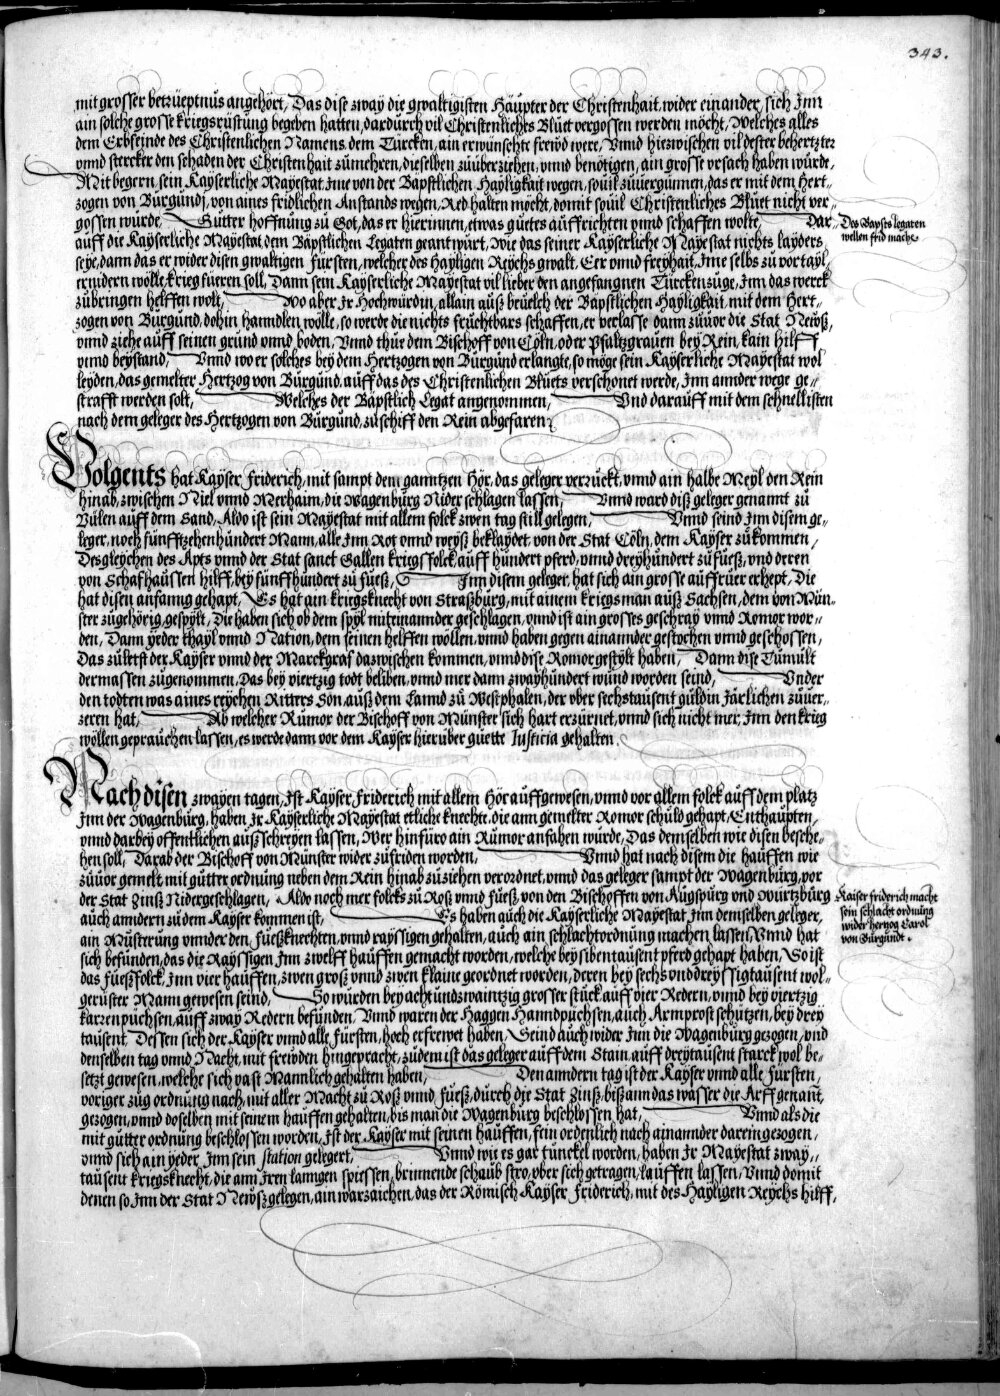 343.
mit grosser betrüeptnus angehört, Das dise zway die gwaltigisten Häupter der Christenhait, wider einander, sich Jnn
ain solche grosse kriegsrüstung begeben hatten, dardurch vil Christenliches Bluet vergossen werden möcht, Welches alles
dem Erbfeinde des Christenlichen Namens, dem Türcken, ain erwünschte frewd were, Vnnd hiezwischen vil dester behertzter
vnnd stercker den schaden der Christenhait zumehren, dieselben zuüberziehen, vnnd benötigen, ain grosse vrsach haben würde,
Mit begern, sein Kayserliche Mayestat, Jme von der Bäpstlichen Hayligkait wegen, souil zuuergünnen, das er mit dem Hert-
zogen von Burgundj, von aines fridlichen Anstands wegen, Red halten möcht, domit souil Christenliches Bluet nicht ver-
gossen würde, Gutter hoffnung zu Got, das er hierinnen, etwas guetes auffrichten vnnd schaffen wolte, Dar-
auff die Kayserliche Mayestat, dem Bäpstlichen Legaten geantwurt, wie das seiner Kayserliche Mayestat nichts layders
seye, dann das er wider disen gwaltigen Fürsten, welcher des Hayligen Reychs gwalt, Eer vnnd freyhait, Jme selbs zu vortayl,
ernidern wolle, krieg fueren soll, Dann sein Kayserliche Mayestat vil lieber den angefangnen Türckenzuge, Jnn das werck
zubringen helffen wolt, Wo aber Jr Hochwürdin, allain auß beuelch der Bäpstlichen Hayligkait, mit dem Hert-
zogen von Burgund, dohin hanndlen wölle, so werde die nichts fruchtbars schaffen, er verlasse dann zuuor die Stat Newß,
vnnd ziehe auff seinen grund vnnd boden, Vnnd thüe dem Bischoff von Cöln, oder Pfaltzgrauen bey Rein, kain hilff
vnnd beystand, Vnnd wo er solches bey dem Hertzogen von Burgund erlangte, so möge sein Kayserliche Mayestat wol
leyden, das gemelter Hertzog von Burgund, auff das des Christenlichen Bluets verschonet werde, Jnn annder wege ge-
strafft werden solt, Welches der Bäpstlich Legat angenommen, Vnd darauff mit dem schnellisten
nach dem geleger des Hertzogen von Burgund, zu schiff den Rein abgefaren.
Des Bapsts legaten
wellen frid mache
Volgents hat Kayser Friderich, mit sampt dem ganntzen Hör, das geleger verruckt, vnnd ain halbe Meyl den Rein
hinab, zwischen Niel vnnd Merhaim, die Wagenburg Nider schlagen lassen, Vnnd ward diß geleger genannt zu
Bülen auff dem Sand, Aldo ist sein Mayestat mit allem folck zwen tag still gelegen, Vnnd seind Jnn disem ge-
leger, noch funfftzehenhundert Mann, alle Jnn Rot vnnd weyß beklaydet, von der Stat Cöln, dem Kayser zukommen,
Desgleychen des Apts vnnd der Stat sanct Gallen kriegsfolck, auff hundert pferd, vnnd dreyhundert zu fueß, vnd deren
von Schafhaussen hilff, bey funffhundert zu fueß, Jnn disem geleger, hat sich ain grosse auffruer erhept, Die
hat disen anfanng gehapt, Es hat ain kriegsknecht von Straßburg, mit ainem kriegsman auß Sachsen, dem von Mün-
ster zugehörig, gespylt, Die haben sich ob dem spyl mitainannder geschlagen, vnnd ist ain grosses geschray vnnd Romor wor-
den, Dann yeder thayl vnnd Nation, dem seinen helffen wöllen, vnnd haben gegen ainannder gestochen vnnd geschossen,
Das zuletst der Kayser vnnd der Marckgraf dazwischen kommen, vnnd dise Romor gestylt haben, Dann dise Tumult
dermassen zugenommen, Das bey viertzig todt beliben, vnnd mer dann zwayhundert wund worden seind, Vnder
den todten was aines reychen Ritters Son, auß dem Lannd zu Westphalen, der ober sechstausent guldin Järlichen zuuer-
zeren hat, Ab welcher Rumor der Bischoff von Münster sich hart erzürnet, vnnd sich nicht mer, Jnn den krieg
wöllen geprauchen lassen, es werde dann vor dem Kayser hierüber guette Justicia gehalten.
Nach disen zwayen tagen, Jst Kayser Friderich mit allem Hör auffgewesen, vnnd vor allem folck auff dem platz
Jnn der Wagenburg, haben Jr Kayserliche Mayestat etliche knechte, die ann gemelter Romor schuld gehapt, Enthaupten,
vnnd darbey offentlichen außschreyen lassen, Wer hinfuro ain Rumor anfahen würde, Das demselben wie disen besche-
hen soll, Darab der Bischoff von Münster wider zufriden worden, Vnnd hat nach disem die hauffen wie
zuuor gemelt, mit gutter ordnung neben dem Rein hinab zuziehen verordnet, vnnd das geleger sampt der Wagenburg, vor
der Stat Zinß Nidergeschlagen, Aldo noch mer folcks zu Roß vnnd fueß, von den Bischoffen von Augspurg vnd Würtzburg
auch anndern zu dem Kayser kommen ist, Es haben auch die Kayserliche Mayestat Jnn demselben geleger,
ain Musterung vnnder den Fueßknechten, vnnd raysigen gehalten, auch ain schlachtordnung machen lassen, Vnnd hat
sich befunden, das die Raysigen Jnn zwelff hauffen gemacht worden, welche bey sibentausent pferd gehapt haben, So ist
das fueßfolck, Jnn vier hauffen, zwen groß vnnd zwen klaine geordnet worden, deren bey sechs vnd dreyssigtausent wol-
geruster Mann gewesen seind, So wurden bey acht undzwaintzig grosser stuck auff vier Redern, vnnd bey viertzig
karrenpuchsen, auff zway Redern befunden, Vnnd waren der Haggen Hanndpuchsen, auch Armprost schützen, bey drey
tausent, Dessen sich der Kayser vnnd alle Fürsten, hoch erfrewet haben, Seind auch wider Jnn die Wagenburg gezogen, vnd
denselben tag vnnd Nacht, mit frewden hingepracht, zudem ist das geleger auff dem Stain, auff dreytausent starck wol be-
setzt gewesen, welche sich vast Mannlich gehalten haben, Den anndern tag ist der Kayser vnnd alle Fürsten,
voriger zug ordnung nach, mit aller Macht zu Roß vnnd fueß, durch die Stat Zinß, biß ann das wasser die Arff genant,
gezogen, vnnd doselben mit seinem hauffen gehalten, bis man die Wagenburg beschlossen hat, Vnnd als die
mit gutter ordnung beschlossen worden, Jst der Kayser mit seinen hauffen, fein ordenlich nach ainannder darein gezogen,
vnnd sich ain yeder Jnn sein station gelegert, Vnnd wie es gar tunckel worden, haben Jr Mayestat zway-
tausent kriegsknecht, die ann Jren lanngen spiessen, brinnende schaub stro, ober sich getragen, lauffen lassen, Vnnd domit
denen so Jnn der Stat Newß gelegen, ain warzaichen, das der Römisch Kayser Friderich, mit des Hayligen Reychs hilff,
Kaiser friderich macht
sein schlacht ordnung
wider hertzog Carol
von Burgundt.